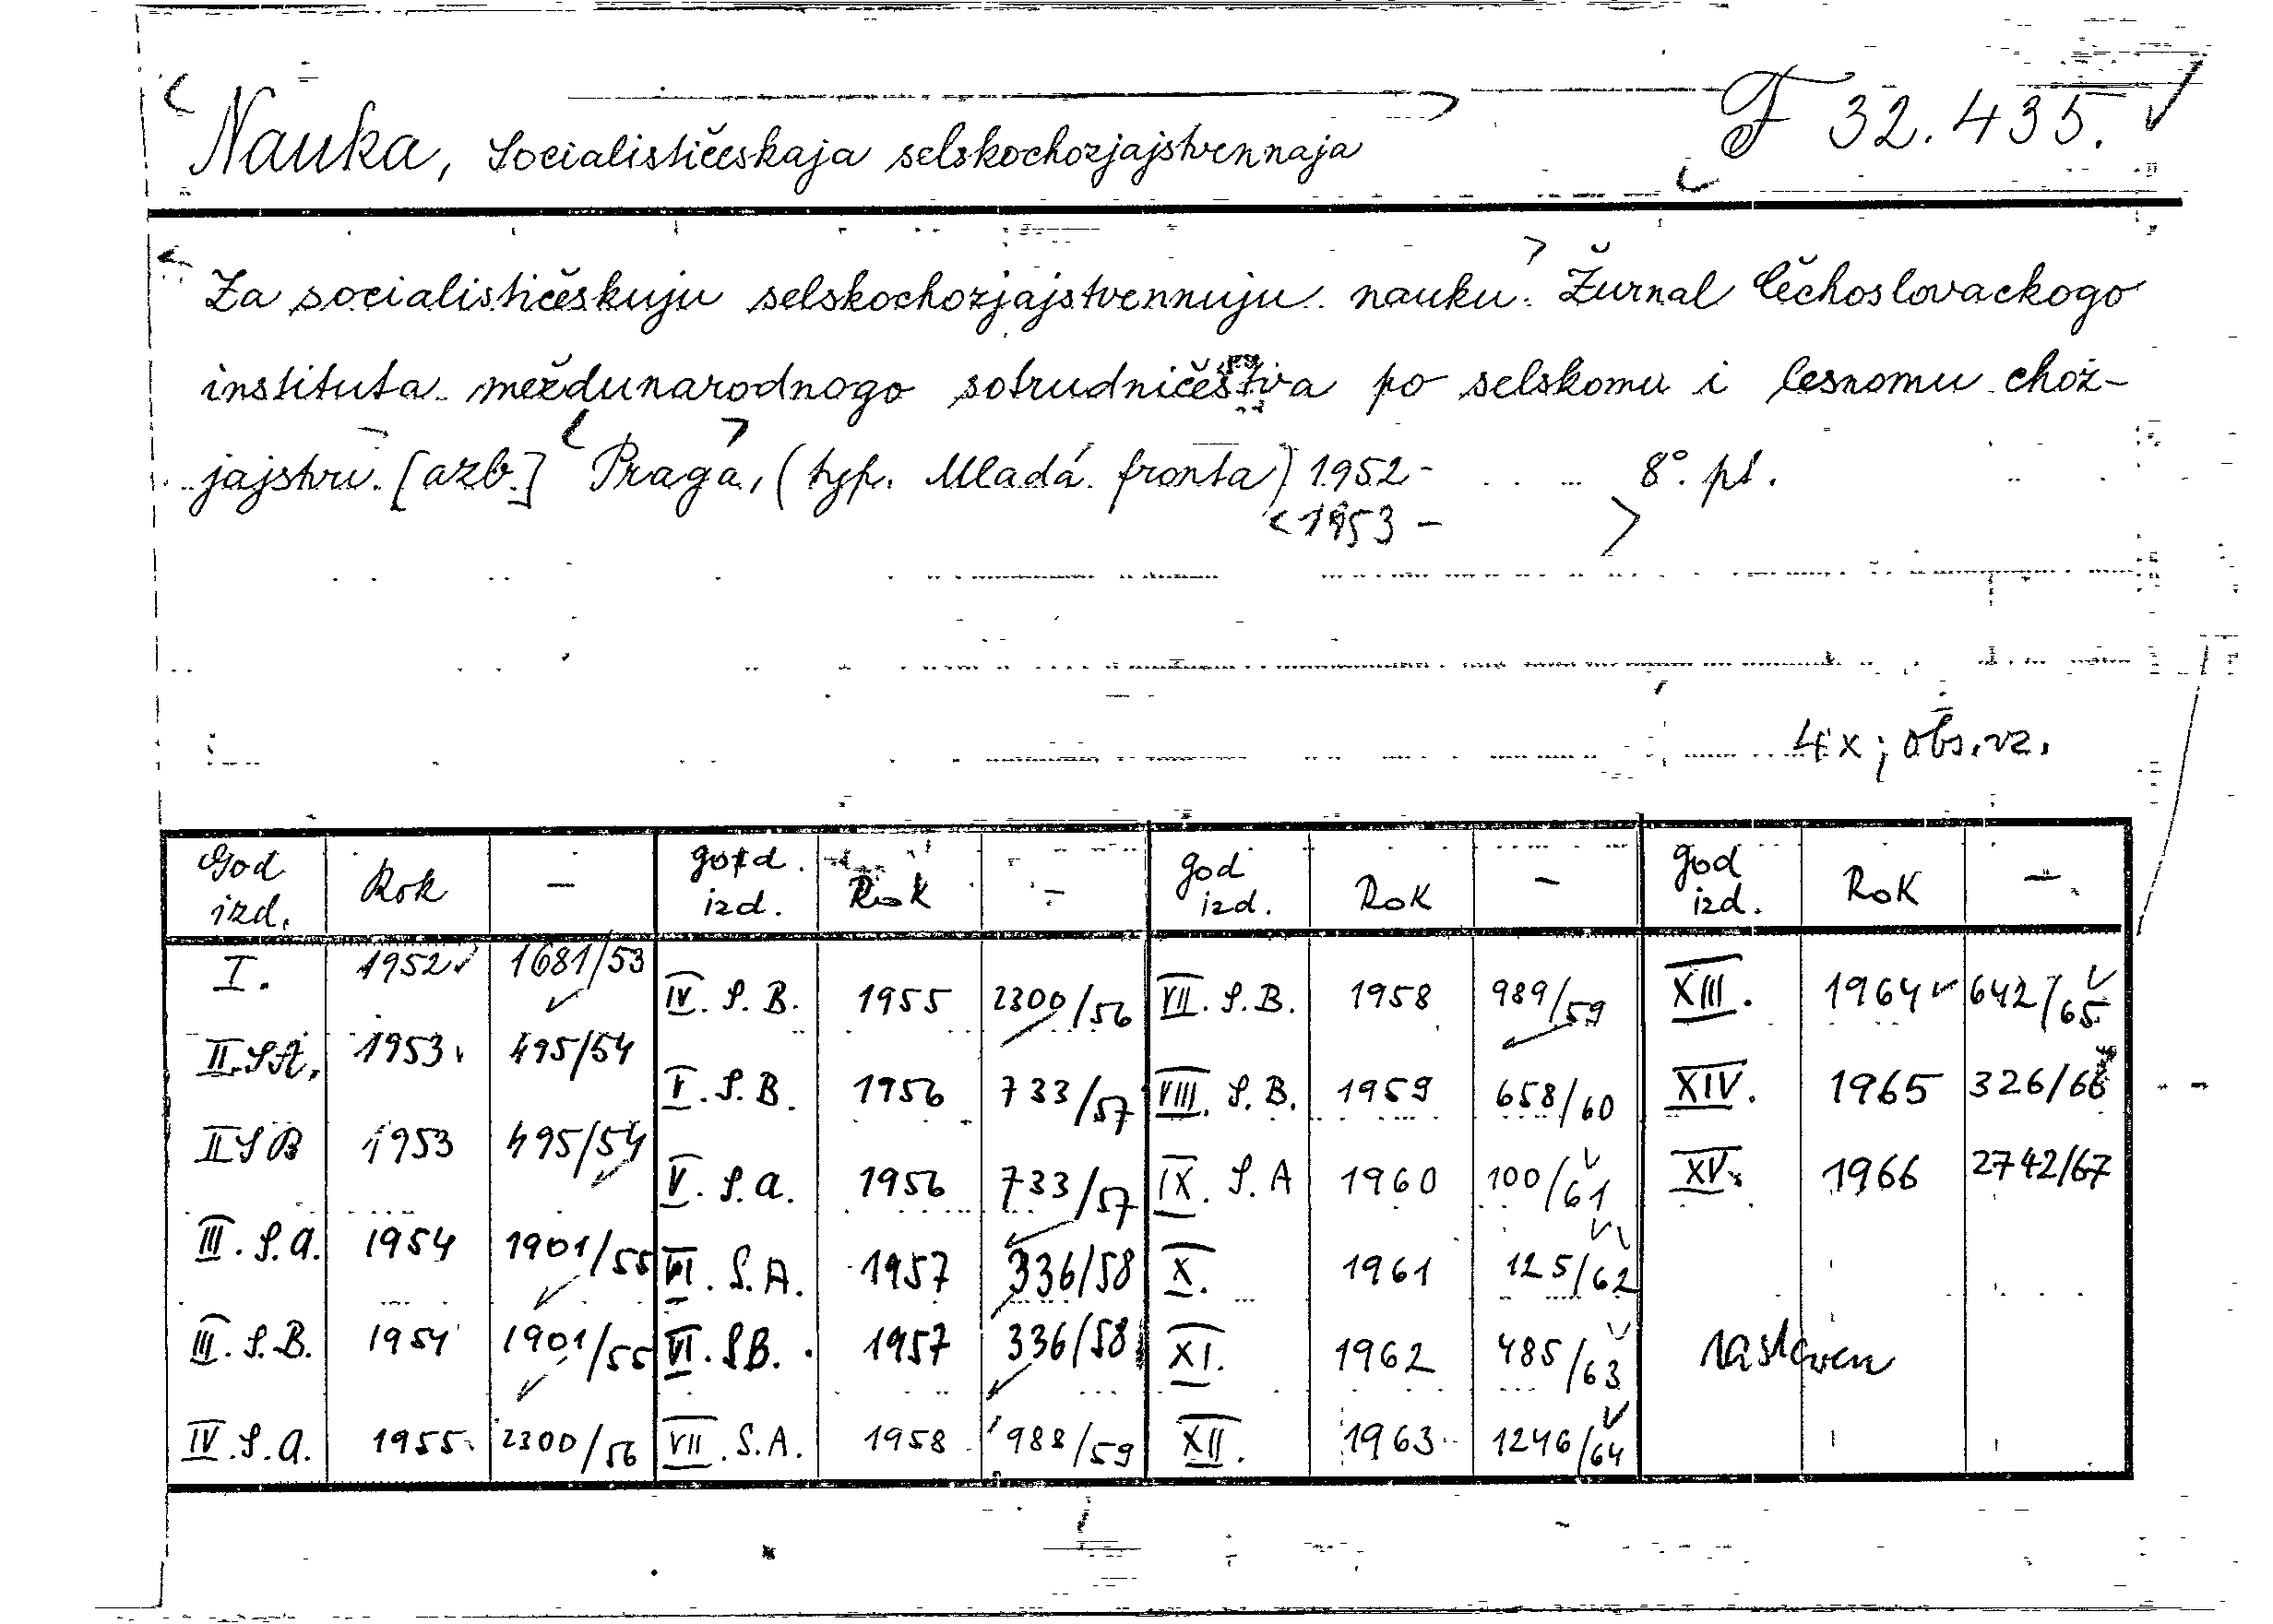 Nauka, Socialističeskaja selskochozjajstvennaja F 32.435.
Za socialističeskuju selskochozjajstvennuju nauku. Žurnal Čechoslovackogo
instituta meždunarodnogo sotrudničestva po selskomu i lesnomu choz-
jajstvu. [azb.] Praga, (typ. Mladá fronta) 1952- 8°. pt.
<1953 - >
4x; obs. vz.
God izd. Rok — god izd. Rok — god izd. Rok — god izd. Rok —
I. 1952 1681/53 IV. S. B. 1955 2300/56 VII. S. B. 1958 989/59 XIII. 1964 642/65
II. S A. 1953 495/54 V. S. B. 1956 733/57 VIII. S. B. 1959 658/60 XIV. 1965 326/66
II S B 1953 495/54 V. S. a. 1956 733/57 IX. S. A 1960 100/61 XV. 1966 2742/67
III. S. a. 1954 1901/55 VI. S. A. 1957 336/58 X. 1961 125/62
III. S. B. 1954 1901/55 VI. S B. 1957 336/58 XI. 1962 485/63 zastaven
IV. S. a. 1955 2300/56 VII. S. A. 1958 988/59 XII. 1963 1246/64